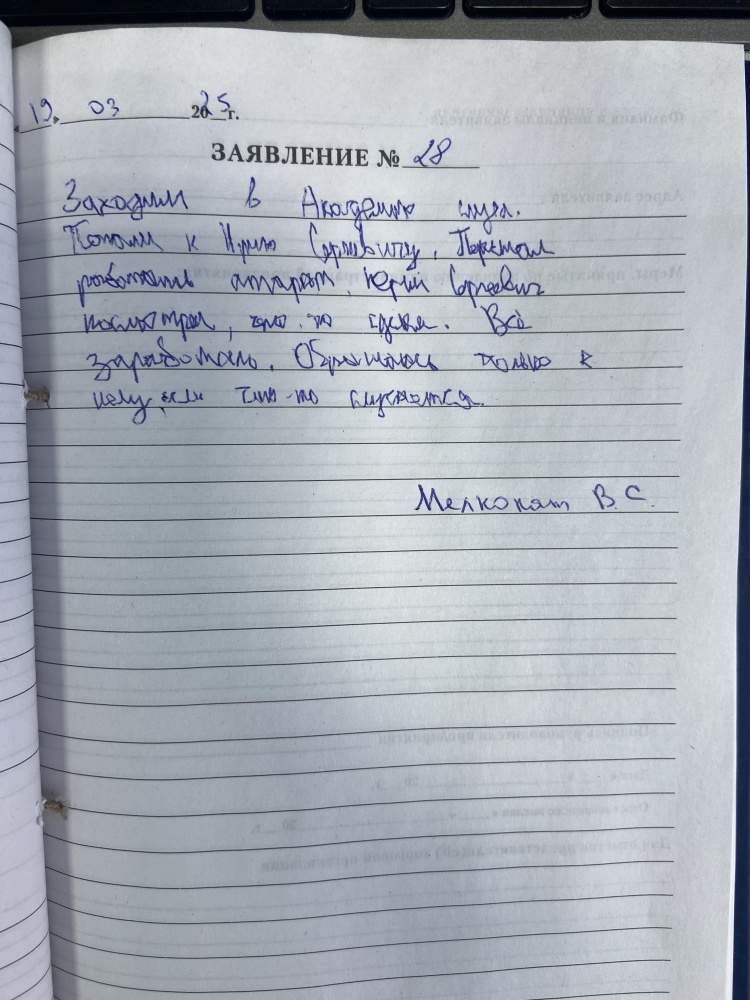 19. 03 2025 г.
ЗАЯВЛЕНИЕ № 28
Заходили в Академию слуха.
Попали к Юрию Сергеевичу, Перестал
работать аппарат, Юрий Сергеевич
посмотрел, что-то сделал. Всё
заработало. Обращаюсь только к
нему, если что-то случается.
В. С.